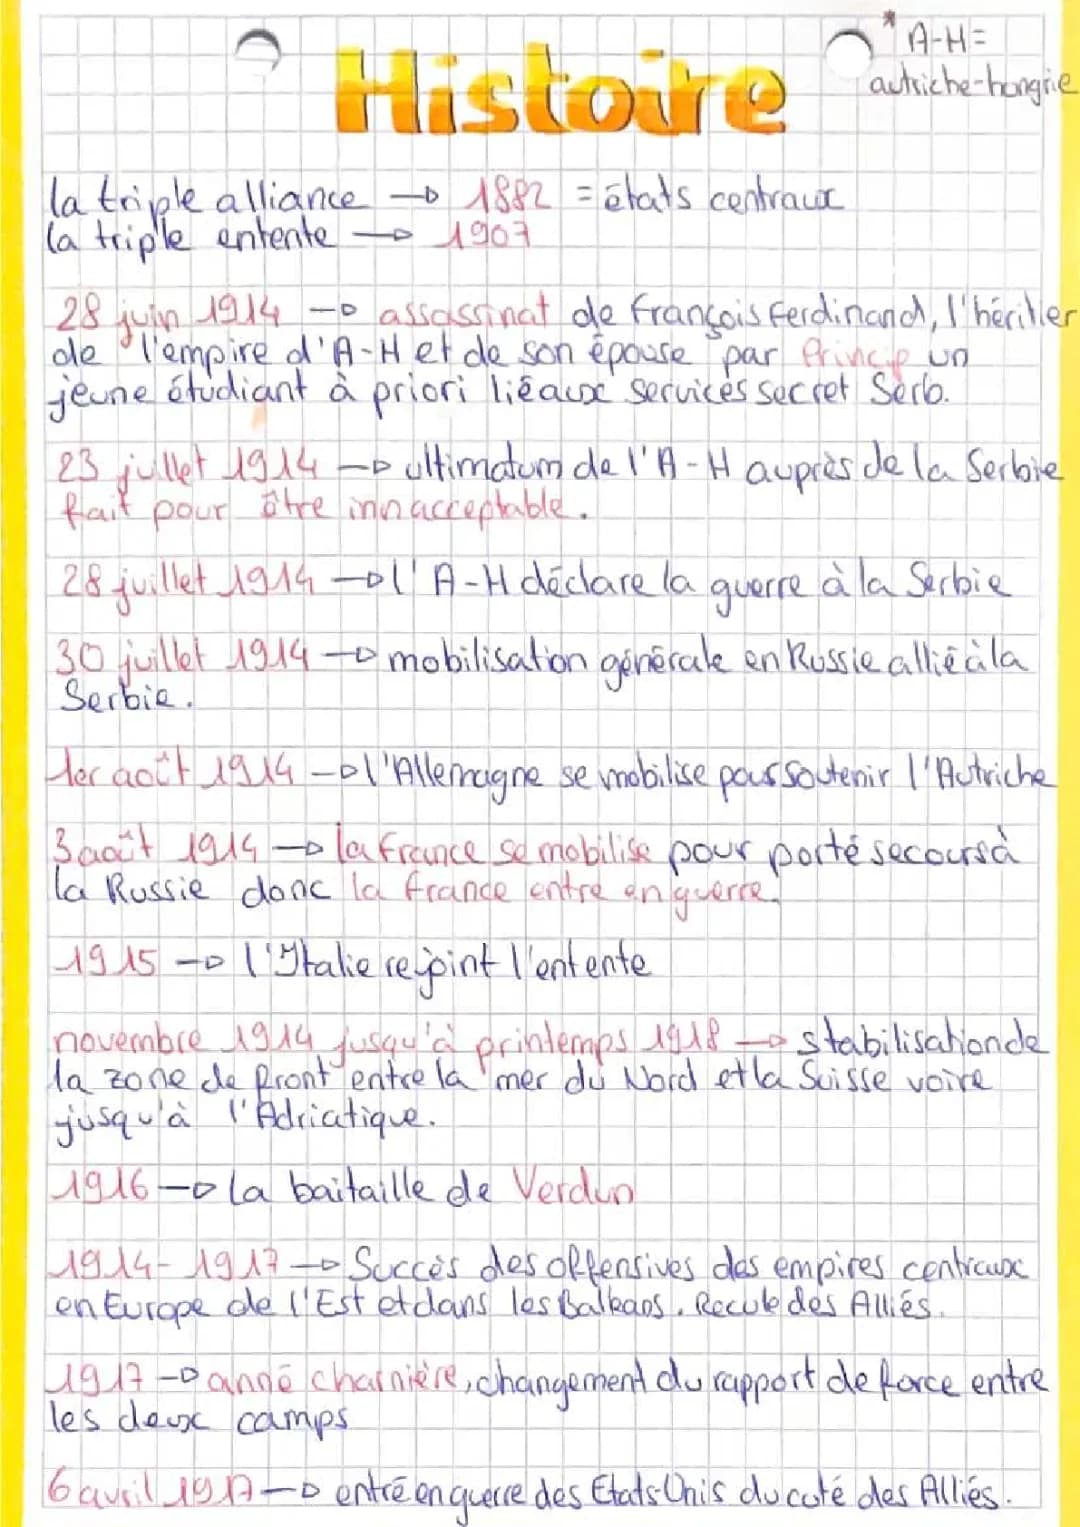 * A-H =
autriche-hongrie
Histoire
la triple alliance → 1882 = états centraux
la triple entente → 1907
28 juin 1914 → assassinat de François Ferdinand, l'héritier
de l'empire d'A-H et de son épouse par Princip un
jeune étudiant à priori lié aux services secret Serb.
23 juillet 1914 → ultimatum de l'A-H auprès de la Serbie
fait pour être innacceptable.
28 juillet 1914 → l'A-H déclare la guerre à la Serbie
30 juillet 1914 → mobilisation générale en Russie allié à la
Serbie.
1er août 1914 → l'Allemagne se mobilise pour soutenir l'Autriche
3 août 1914 → la France se mobilise pour porté secours à
la Russie donc la france entre en guerre.
1915 → l'Italie rejoint l'entente
novembre 1914 jusqu'à printemps 1918 → stabilisation de
la zone de front entre la mer du Nord et la Suisse voire
jusqu'à l'Adriatique.
1916 → la baitaille de Verdun
1914-1917 → Succès des offensives des empires centraux
en Europe de l'Est et dans les Balkans. Recule des Alliés.
1917 → anné charnière, changement du rapport de force entre
les deux camps
6 avril 1917 → entré en guerre des Etats-Unis du coté des Alliés.